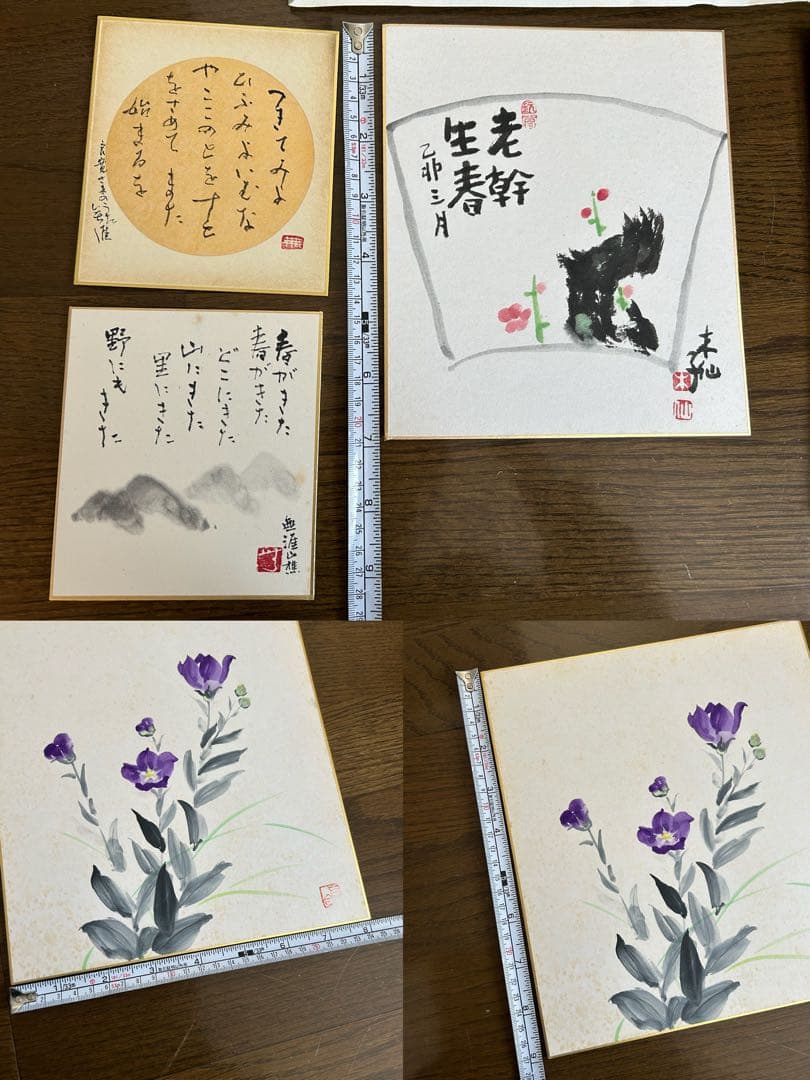 つきてみよ
ひふみよいむな
やここのとをすと
をさめてまた
始まるを
良寛さまのうた
老幹
生春
乙卯三月
未仙
春がきた
春がきた
どこにきた
山にきた
里にきた
野にも
きた
無涯山樵